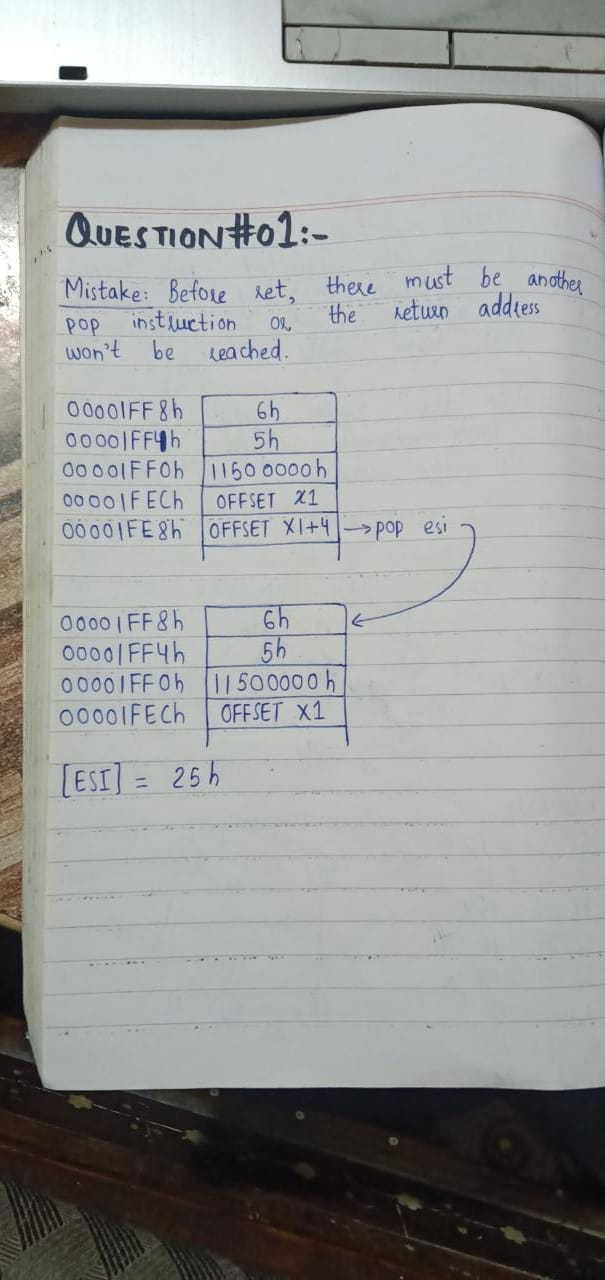 QUESTION#01:-
Mistake: Before ret, there must be another
pop instruction or the return address
won't be reached.
00001FF8h 6h
00001FF4h 5h
00001FF0h 11500000h
00001FECh OFFSET X1
00001FE8h OFFSET X1+4 → pop esi
00001FF8h 6h
00001FF4h 5h
00001FF0h 11500000h
00001FECh OFFSET X1
[ESI] = 25h